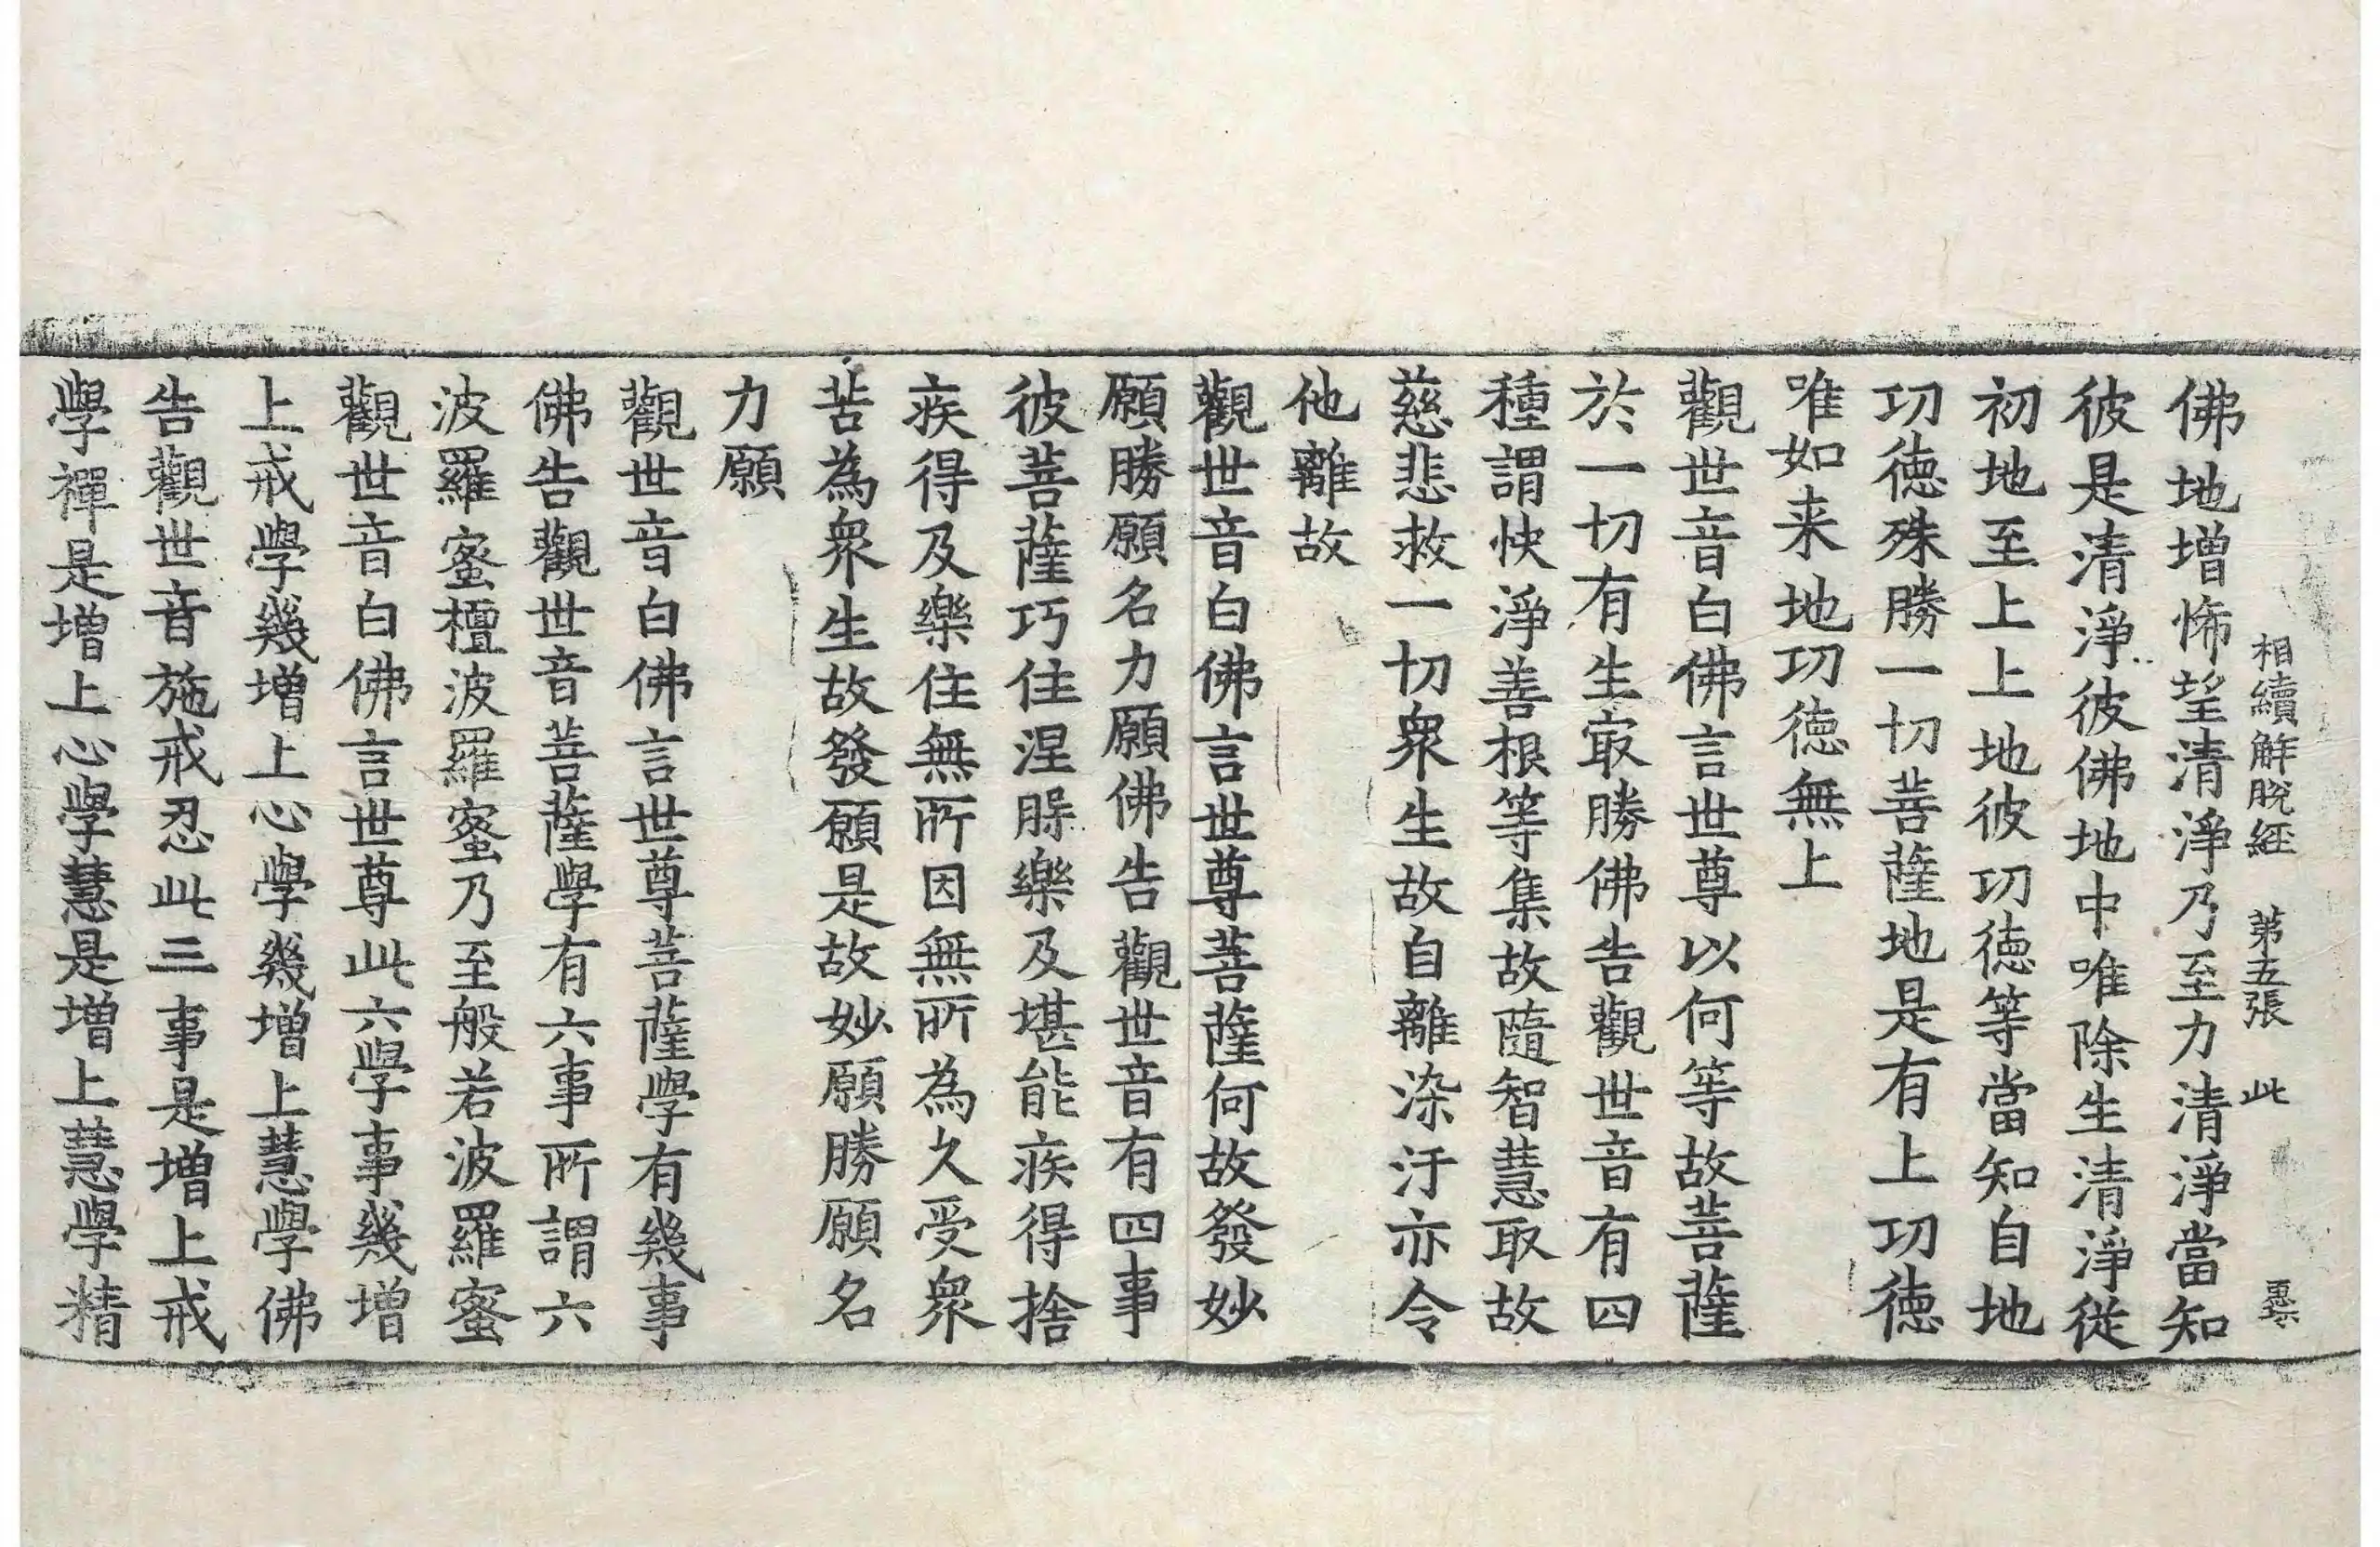 相續解脫經 第五張 此
佛地增怖望清淨乃至力清淨當知
彼是清淨彼佛地中唯除生清淨從
初地至上上地彼功德等當知自地
功德殊勝一切菩薩地是有上功德
唯如来地功德無上
觀世音白佛言世尊以何等故菩薩
於一切有生㝡勝佛告觀世音有四
種謂快淨善根等集故隨智慧取故
慈悲救一切衆生故自離染汙亦令
他離故
觀世音白佛言世尊菩薩何故發妙
願勝願名力願佛告觀世音有四事
彼菩薩巧住涅槃樂及堪能疾得捨
疾得及樂住無所因無所為久受衆
苦為衆生故發願是故妙願勝願名
力願
觀世音白佛言世尊菩薩學有幾事
佛告觀世音菩薩學有六事所謂六
波羅蜜檀波羅蜜乃至般若波羅蜜
觀世音白佛言世尊此六學事幾增
上戒學幾增上心學幾增上慧學佛
告觀世音施戒忍此三事是增上戒
學禪是增上心學慧是增上慧學精